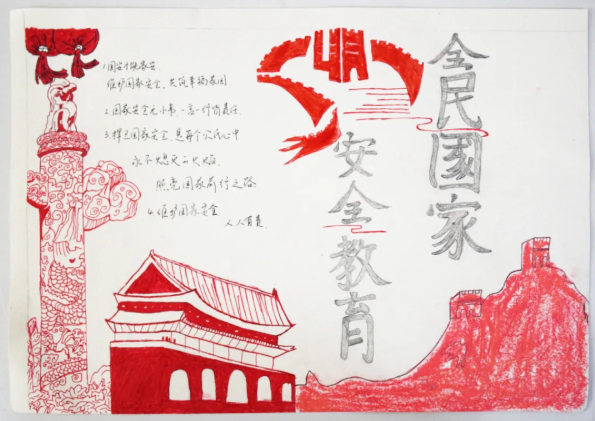 全民国家
安全教育
1.国安才能家安
维护国家安全,共筑幸福家园.
2.国家安全无小事,一言一行 责任.
3.捍卫国家安全,是每个公民心中
永不熄灭的火焰,
照亮国家前行之路.
4.维护国家安全
人人有责.